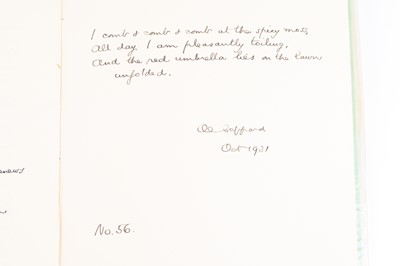 I comb & comb & comb at the spicy mats,
All day I am pleasantly toiling,
And the red umbrella lies on the lawn
unfolded.
Oct 1931
No. 56.